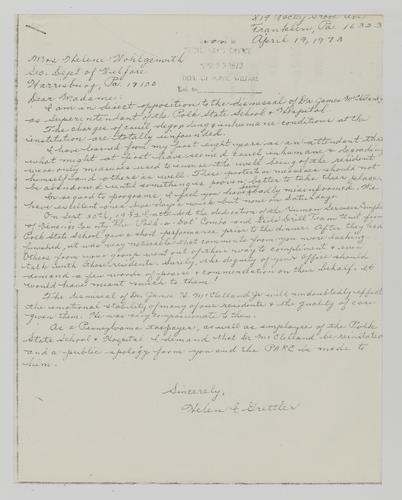 819 Rocky Grove Ave.
Franklin, Pa. 16323
April 19, 1973
Mrs. Helene Wohlgemuth
Sec. Dept of Welfare
Harrisburg, Pa. 17100
DEPT. OF PUBLIC WELFARE
Dear Madame:
I am in direct opposition to the dismissal of Dr. James McClelland
as Superintendent of the Polk State School & Hospital.
The charges of cruel, degrading & inhumane conditions at the
institution are totally unfounded.
I have learned from my past eight years as an attendant that
what might at first have seemed cruel, inhumane & degrading
were only measures used to insure the well being of the resident
himself and others as well. These protective measures should not
be abandoned until something is proven better to take their place.
In regard to programs, I feel you have been sadly misinformed. We
have excellent ones five days a week but none on Saturdays.
On Sept 30th, 1972 I attended the dedication of the Human Services Complex
of Venango County. The Polka Dot Combo and Girls Drill Team that from
Polk State School gave a short performance prior to the dinner. After they had
finished, it was very noticeable that comments from your
Others from our group went out of their way to compliment &
talk with these residents. Surely, the dignity of your office should
demand a few words of praise & commendation on their behalf. It
would have meant much to them!
The dismissal of Dr. James H. McClelland Jr. will undoubtedly affect
the emotional stability of many of our residents & the quality of care
given them. He was very compassionate to them.
As a Pennsylvania taxpayer, as well as employee of the Polk
State School & Hospital I demand that Dr. McClelland be reinstated
and a public apology from you and the PARC is made to
him.
Sincerely,
Helen E. Grettler